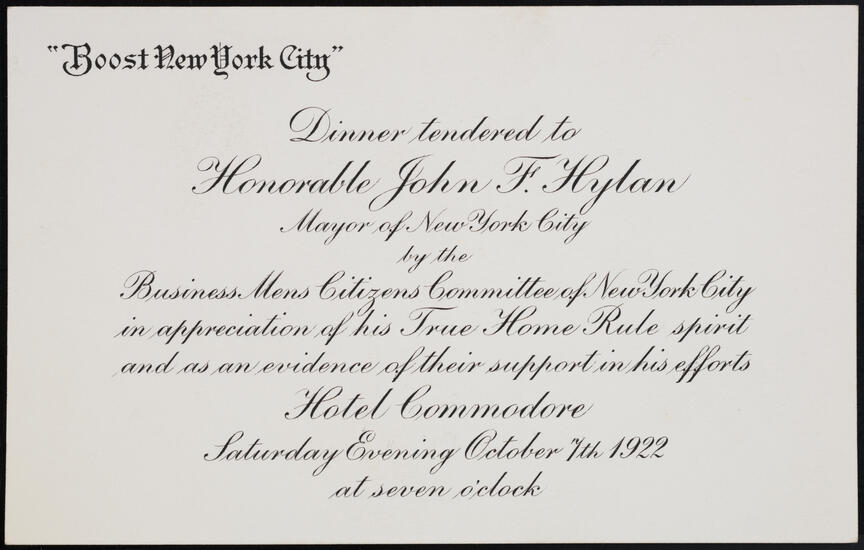 "Boost New York City"
Dinner tendered to
Honorable John F. Hylan
Mayor of New York City
by the
Business Mens Citizens Committee of New York City
in appreciation of his True Home Rule spirit
and as an evidence of their support in his efforts
Hotel Commodore
Saturday Evening October 7th 1922
at seven o'clock